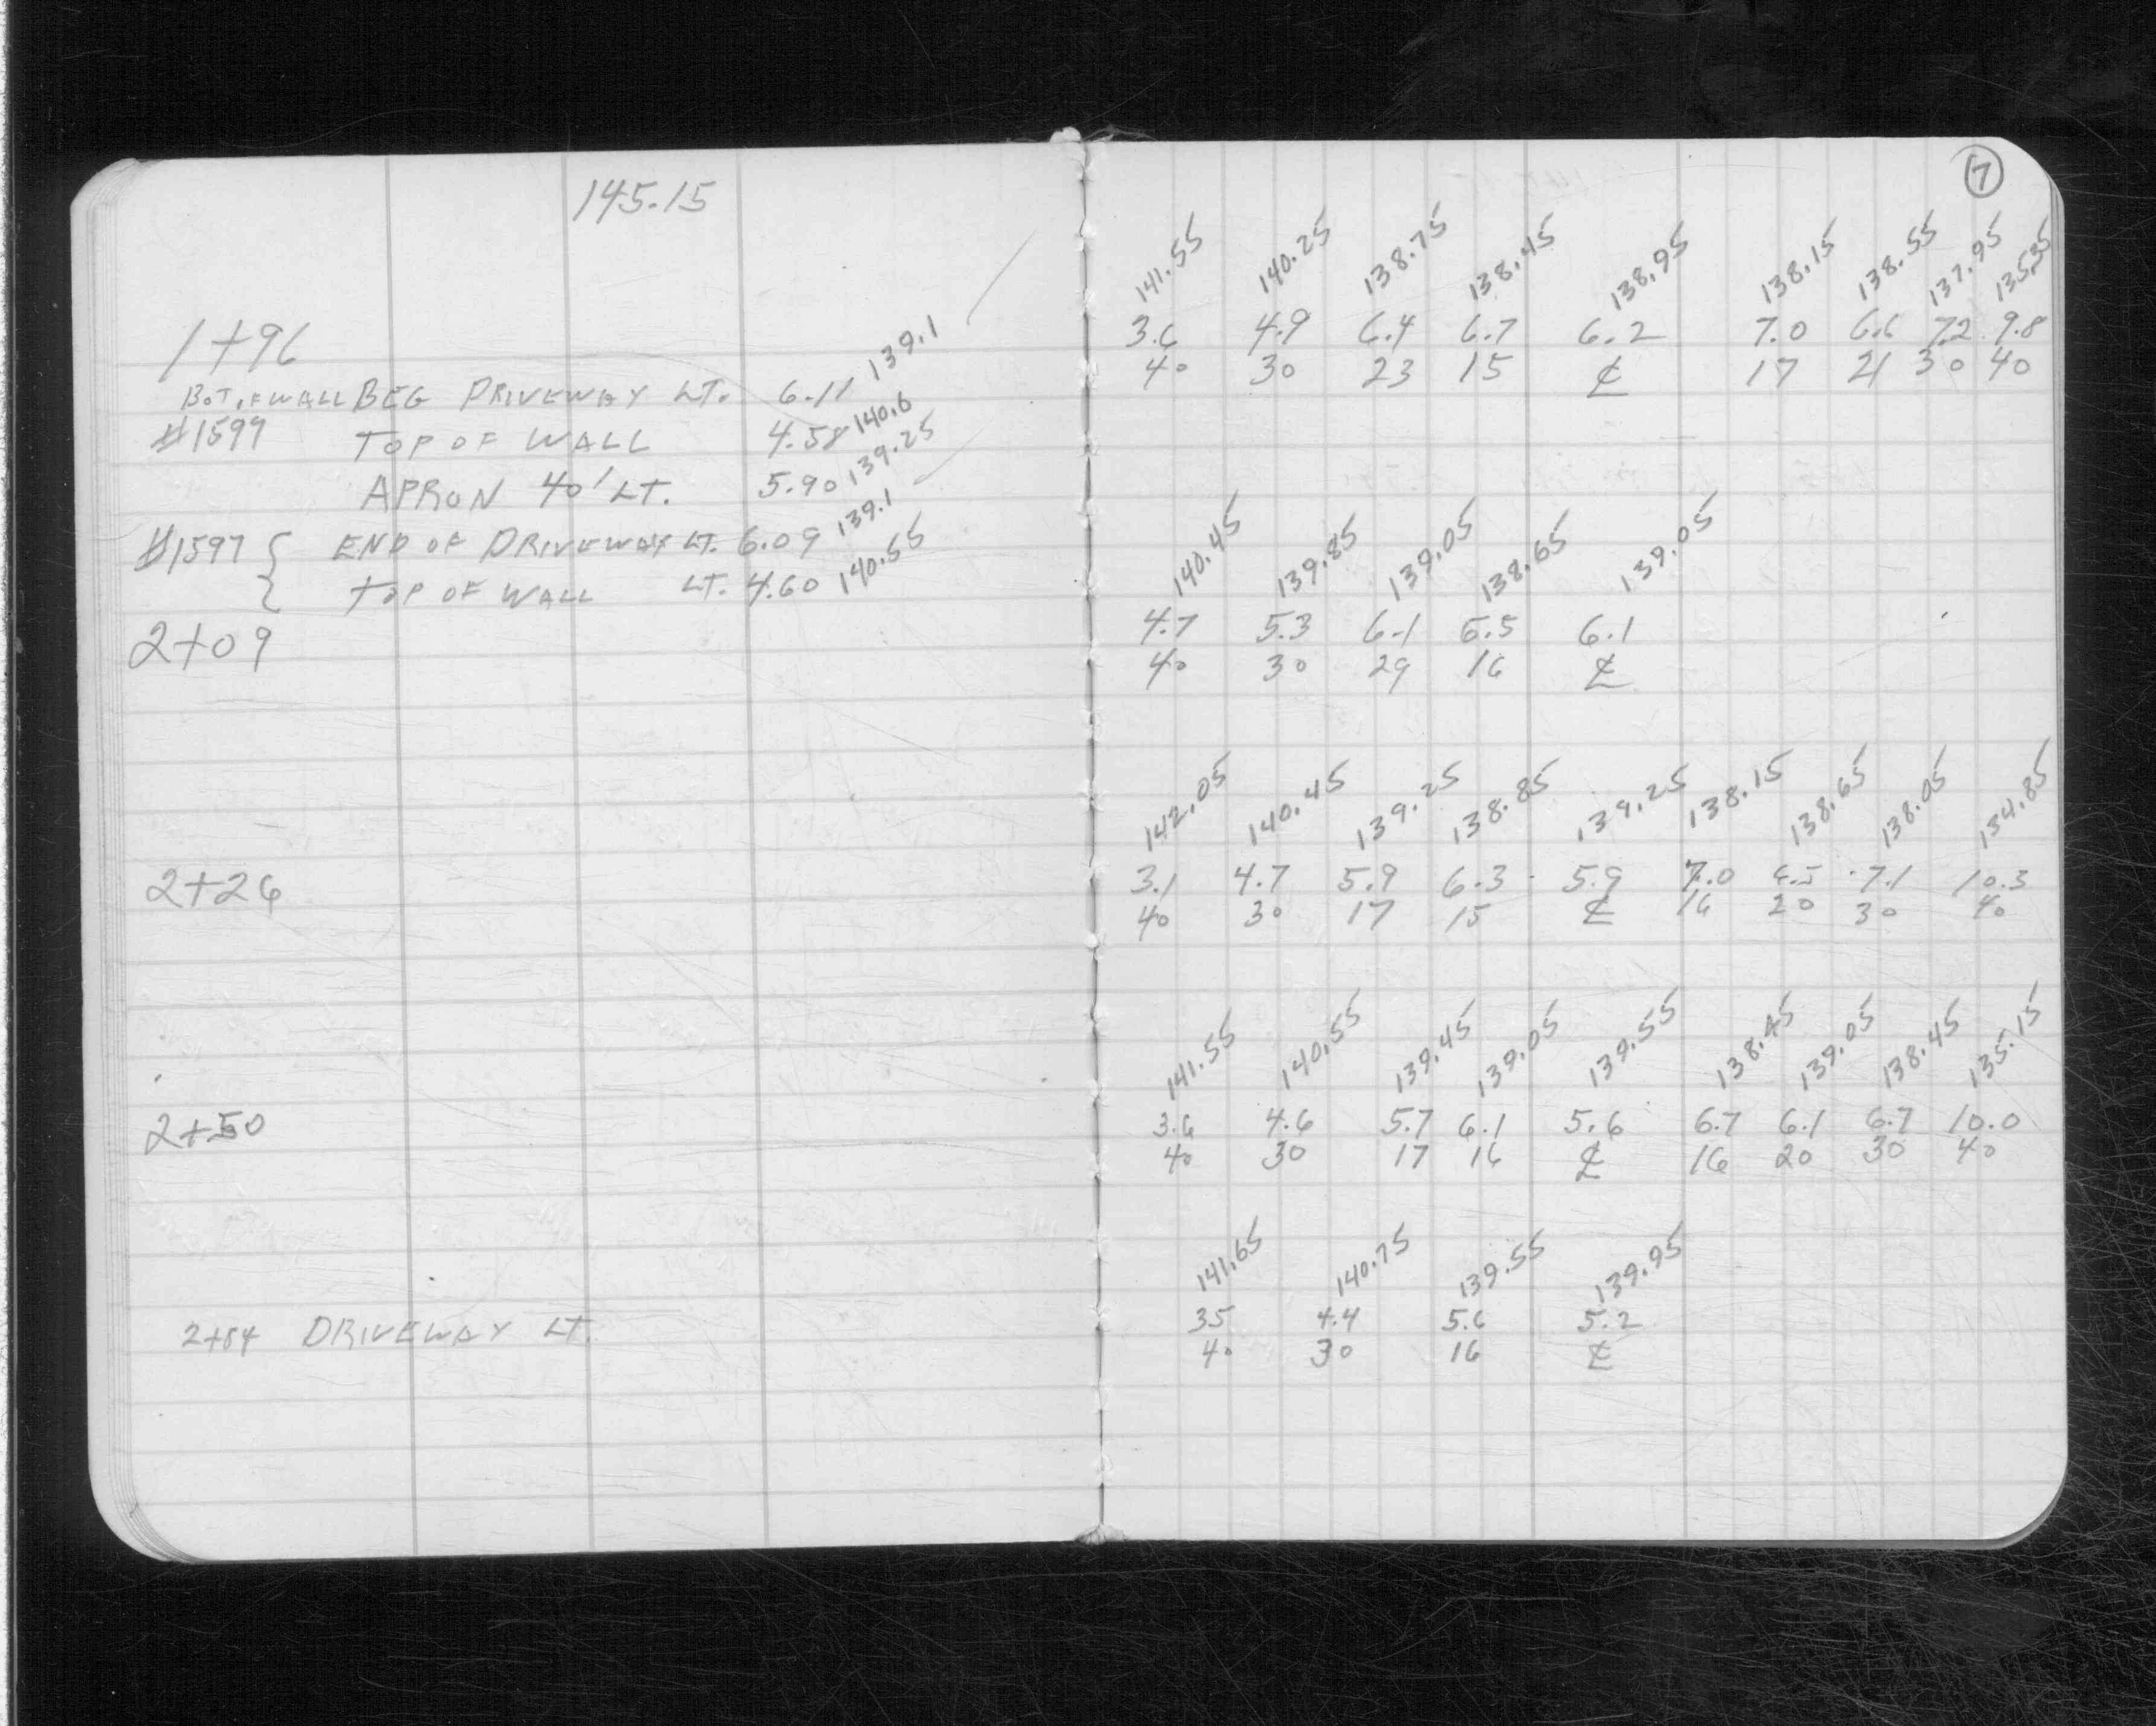 145.15
1+96
BOT. OF WALL BEG DRIVEWAY LT. 6.11 139.1
#1599 TOP OF WALL 4.58 140.6
APRON 40' LT. 5.90 139.25
#1597 { END OF DRIVEWAY LT. 6.09 139.1
TOP OF WALL LT. 4.60 140.55
2+09
2+26
2+50
2+84 DRIVEWAY LT.
7
141.55 140.25 138.75 138.45 138.95 138.15 138.55 137.95 135.35
3.6 4.9 6.4 6.7 6.2 7.0 6.6 7.2 9.8
40 30 23 15 ℄ 17 21 30 40
140.45 139.85 139.05 138.65 139.05
4.7 5.3 6.1 6.5 6.1
40 30 29 16 ℄
142.05 140.45 139.25 138.85 139.25 138.15 138.65 138.05 134.85
3.1 4.7 5.9 6.3 5.9 7.0 6.5 7.1 10.3
40 30 17 15 ℄ 16 20 30 40
141.55 140.55 139.45 139.05 139.55 138.45 139.05 138.45 135.15
3.6 4.6 5.7 6.1 5.6 6.7 6.1 6.7 10.0
40 30 17 16 ℄ 16 20 30 40
141.65 140.75 139.55 139.95
35 4.4 5.6 5.2
40 30 16 ℄